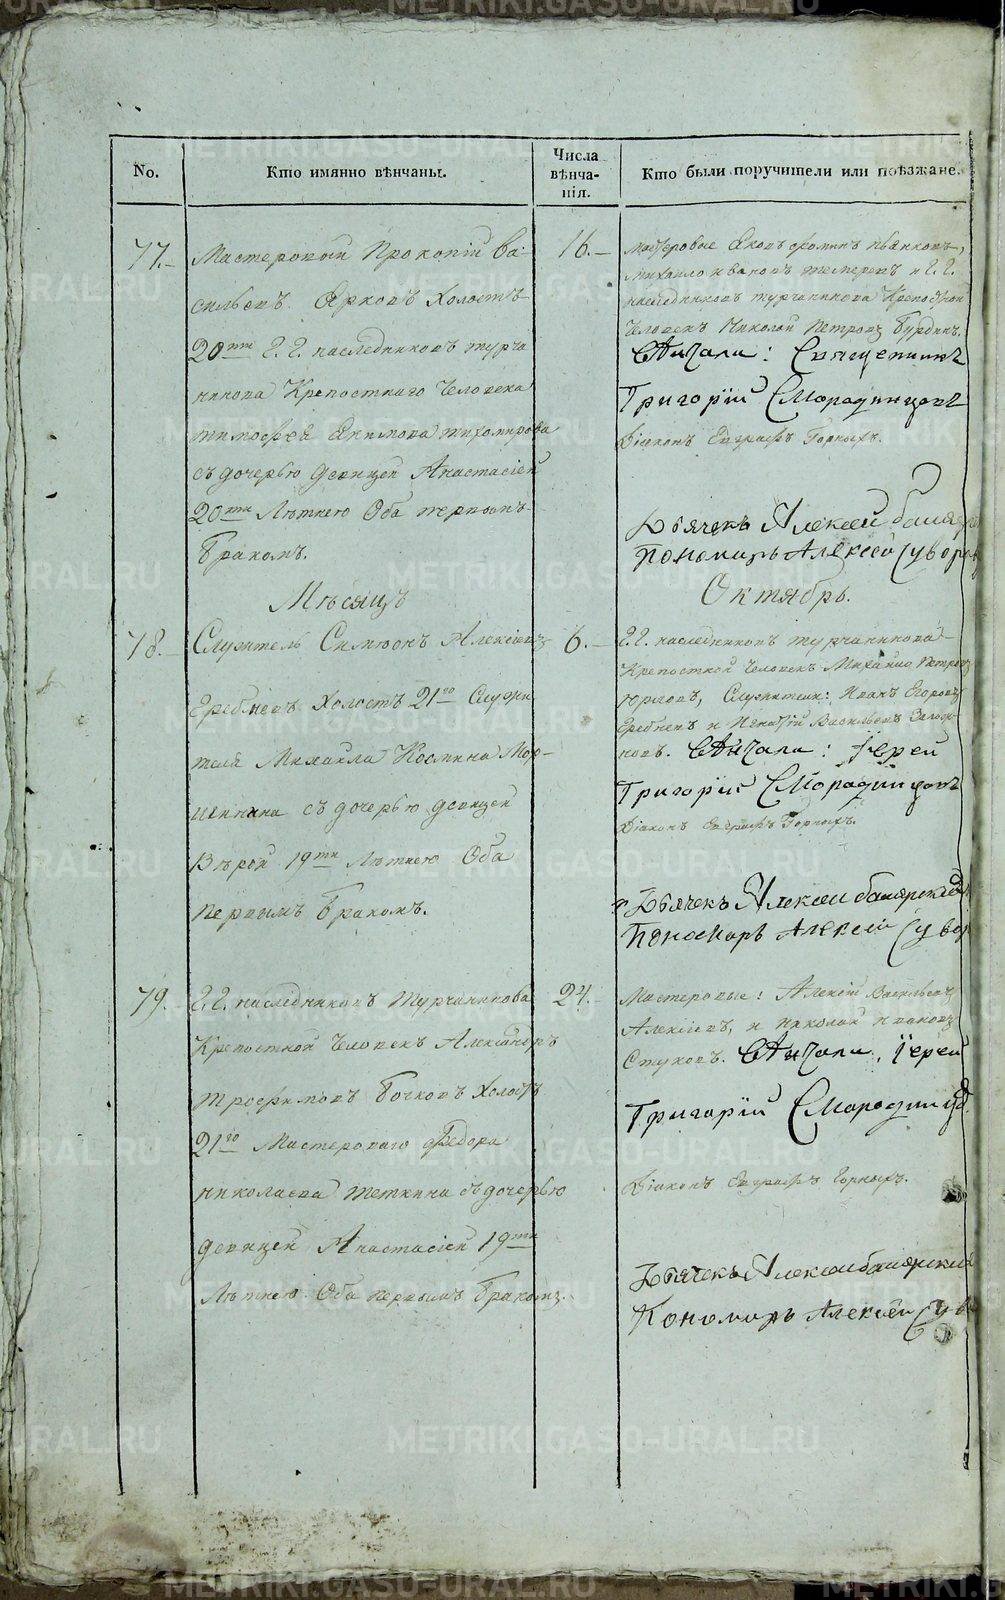 No.
Кто имянно вѣнчаны.
Числа
вѣнча-
нія.
Кто были поручители или поѣзжане.
77.
Мастеровой Прокопій Ва-
сильевъ Ярковъ холостъ
20ти Г.Г. наследниковъ турча
нинова Крепостнаго Человека
тимофея Екимова тихомирова
съ дочерью девицей Анастасіей
20ти Лѣтнею Оба первымъ
бракомъ.
16.
Мастеровые Яковъ Иванковъ,
Михайло ивановъ темеревъ и Г.Г.
наследниковъ турчанинова Крепостной
Человекъ Николай Петровъ Бурдинъ.
Вѣнчали: Священникъ
Григорій Смородинцовъ
Діаконъ Евграфъ Горныхъ.
Дьячекъ Алексей
Пономарь Алексей Суворовъ
Мѣсяцъ
Октябрь.
78.
Служитель Симеонъ Алексіевъ
Еребневъ Холостъ 21го Служи
теля Михаила Космина Мор-
шинина съ дочерью девицей
Вѣрой 19ти Лѣтнею Оба
первымъ бракомъ.
6.
Г.Г. наследниковъ турчанинова
Крепостной Человекъ Михайло Петровъ
Юрловъ, Служители: Иванъ Егоровъ
Еребневъ и Игнатій Васильевъ
новъ. Вѣнчали: Іерей
Григорій Смородинцовъ
Діаконъ Евграфъ Горныхъ.
Дьячекъ Алексей Боярскій
Пономарь Алексей Сувор
79.
Г.Г. наследниковъ Турчанинова
Крепостной Человекъ Александръ
трофимовъ Бочковъ Холостъ
21го Мастероваго Федора
николаева теткина съ дочерью
девицей Анастасіей 19ти
Лѣтнею Оба первымъ бракомъ.
24.
Мастеровые: Алексій Васильевъ
Алексіевъ, и николай ивановъ
Стуковъ. Вѣнчали, Іерей
Григорій Смородинцо
Діаконъ Евграфъ Горныхъ.
Дьячекъ Алексей Боярскій
Пономарь Алексей Суво
METRIKI.GASO-URAL.RU